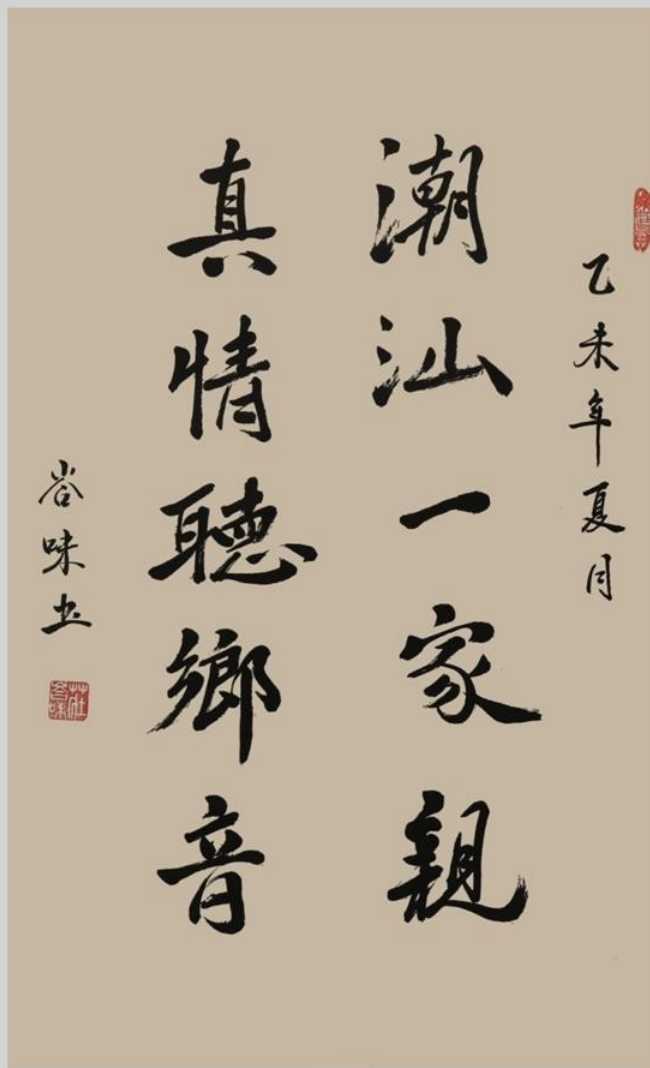 乙未年夏月
潮汕一家親
真情聽鄉音
味书